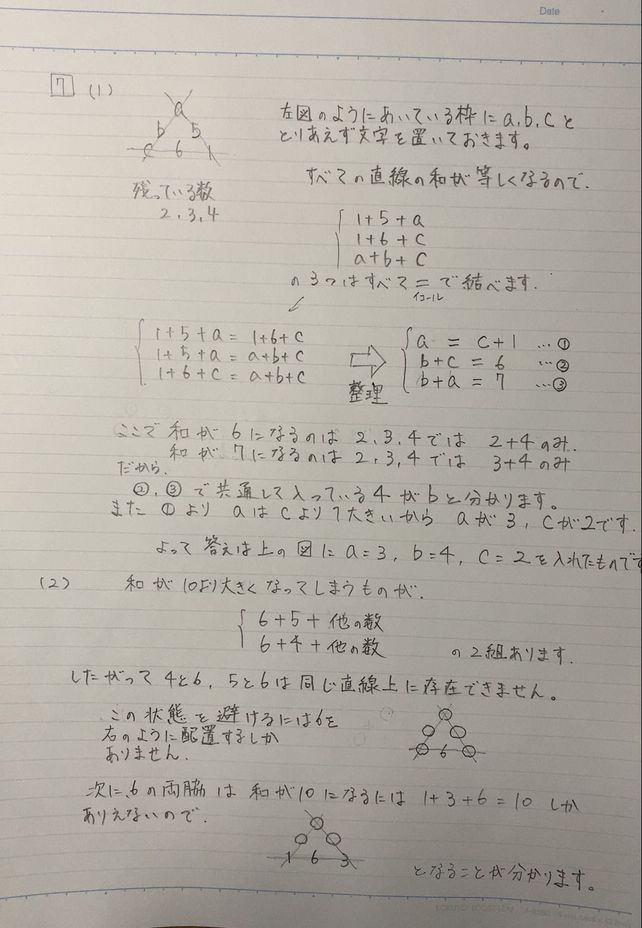 Date
7 (1)
a
b 5
c 6 1
残っている数
2,3,4
左図のようにあいている枠にa,b,cと
とりあえず文字を置いておきます。
すべての直線の和が等しくなるので、
1+5+a
1+6+c
a+b+c
の3つはすべて=で結べます.
イコール
1+5+a = 1+6+c
1+5+a = a+b+c
1+6+c = a+b+c
整理
a = c+1 …①
b+c = 6 …②
b+a = 7 …③
ここで 和が 6になるのは 2,3,4では 2+4のみ.
和が 7になるのは 2,3,4では 3+4のみ
だから、
②,③で共通して入っている4がbと分かります。
また ①より aはcより1大きいから aが3, cが2です.
よって 答えは上の図に a=3, b=4, c=2を入れたものです
(2) 和が10より大きくなってしまうものが、
6+5+他の数
6+4+他の数
の2組あります.
したがって 4と6, 5と6は同じ直線上に存在できません。
この状態を避けるには6を
右のように配置するしか
ありません.
6
次に、6の両脇は 和が10になるには 1+3+6=10 しか
ありえないので、
1 6 3
となることが分かります。